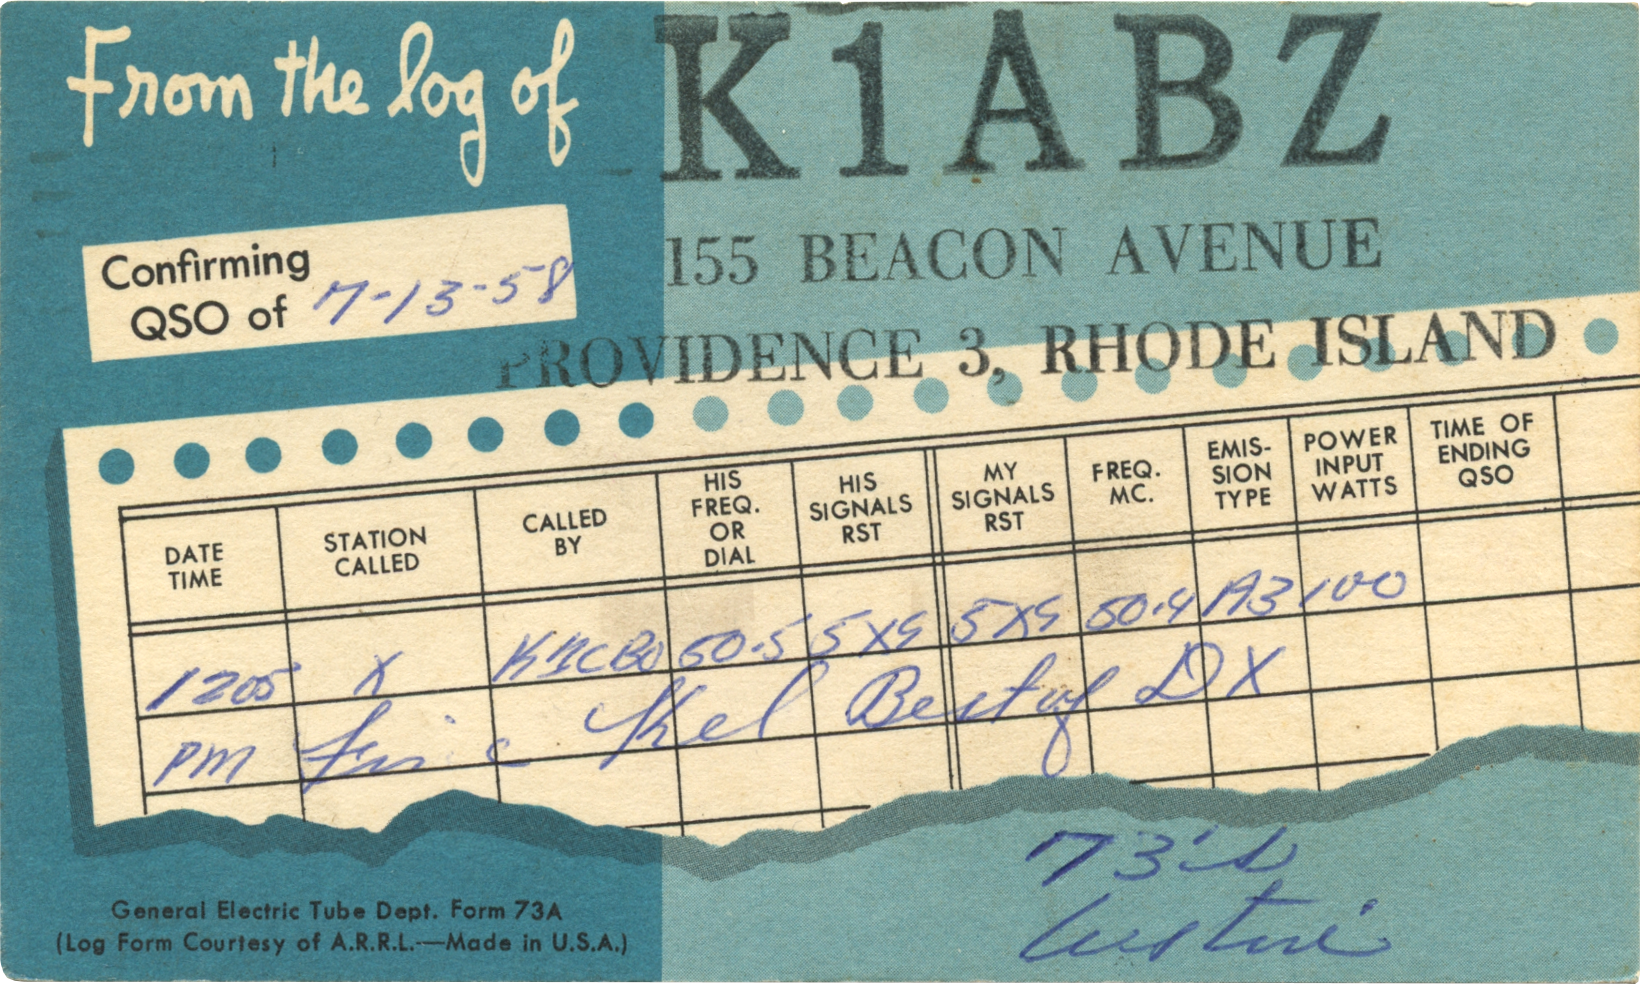 From the log of
K1ABZ
155 BEACON AVENUE
PROVIDENCE 3, RHODE ISLAND
Confirming
QSO of 7-13-58
DATE TIME
STATION CALLED
CALLED BY
HIS FREQ. OR DIAL
HIS SIGNALS RST
MY SIGNALS RST
FREQ. MC.
EMIS-SION TYPE
POWER INPUT WATTS
TIME OF ENDING QSO
1205 X 50.5 5X9 5X9 50.4 A3 100
PM Best of DX
73's
General Electric Tube Dept. Form 73A
(Log Form Courtesy of A.R.R.L.—Made in U.S.A.)